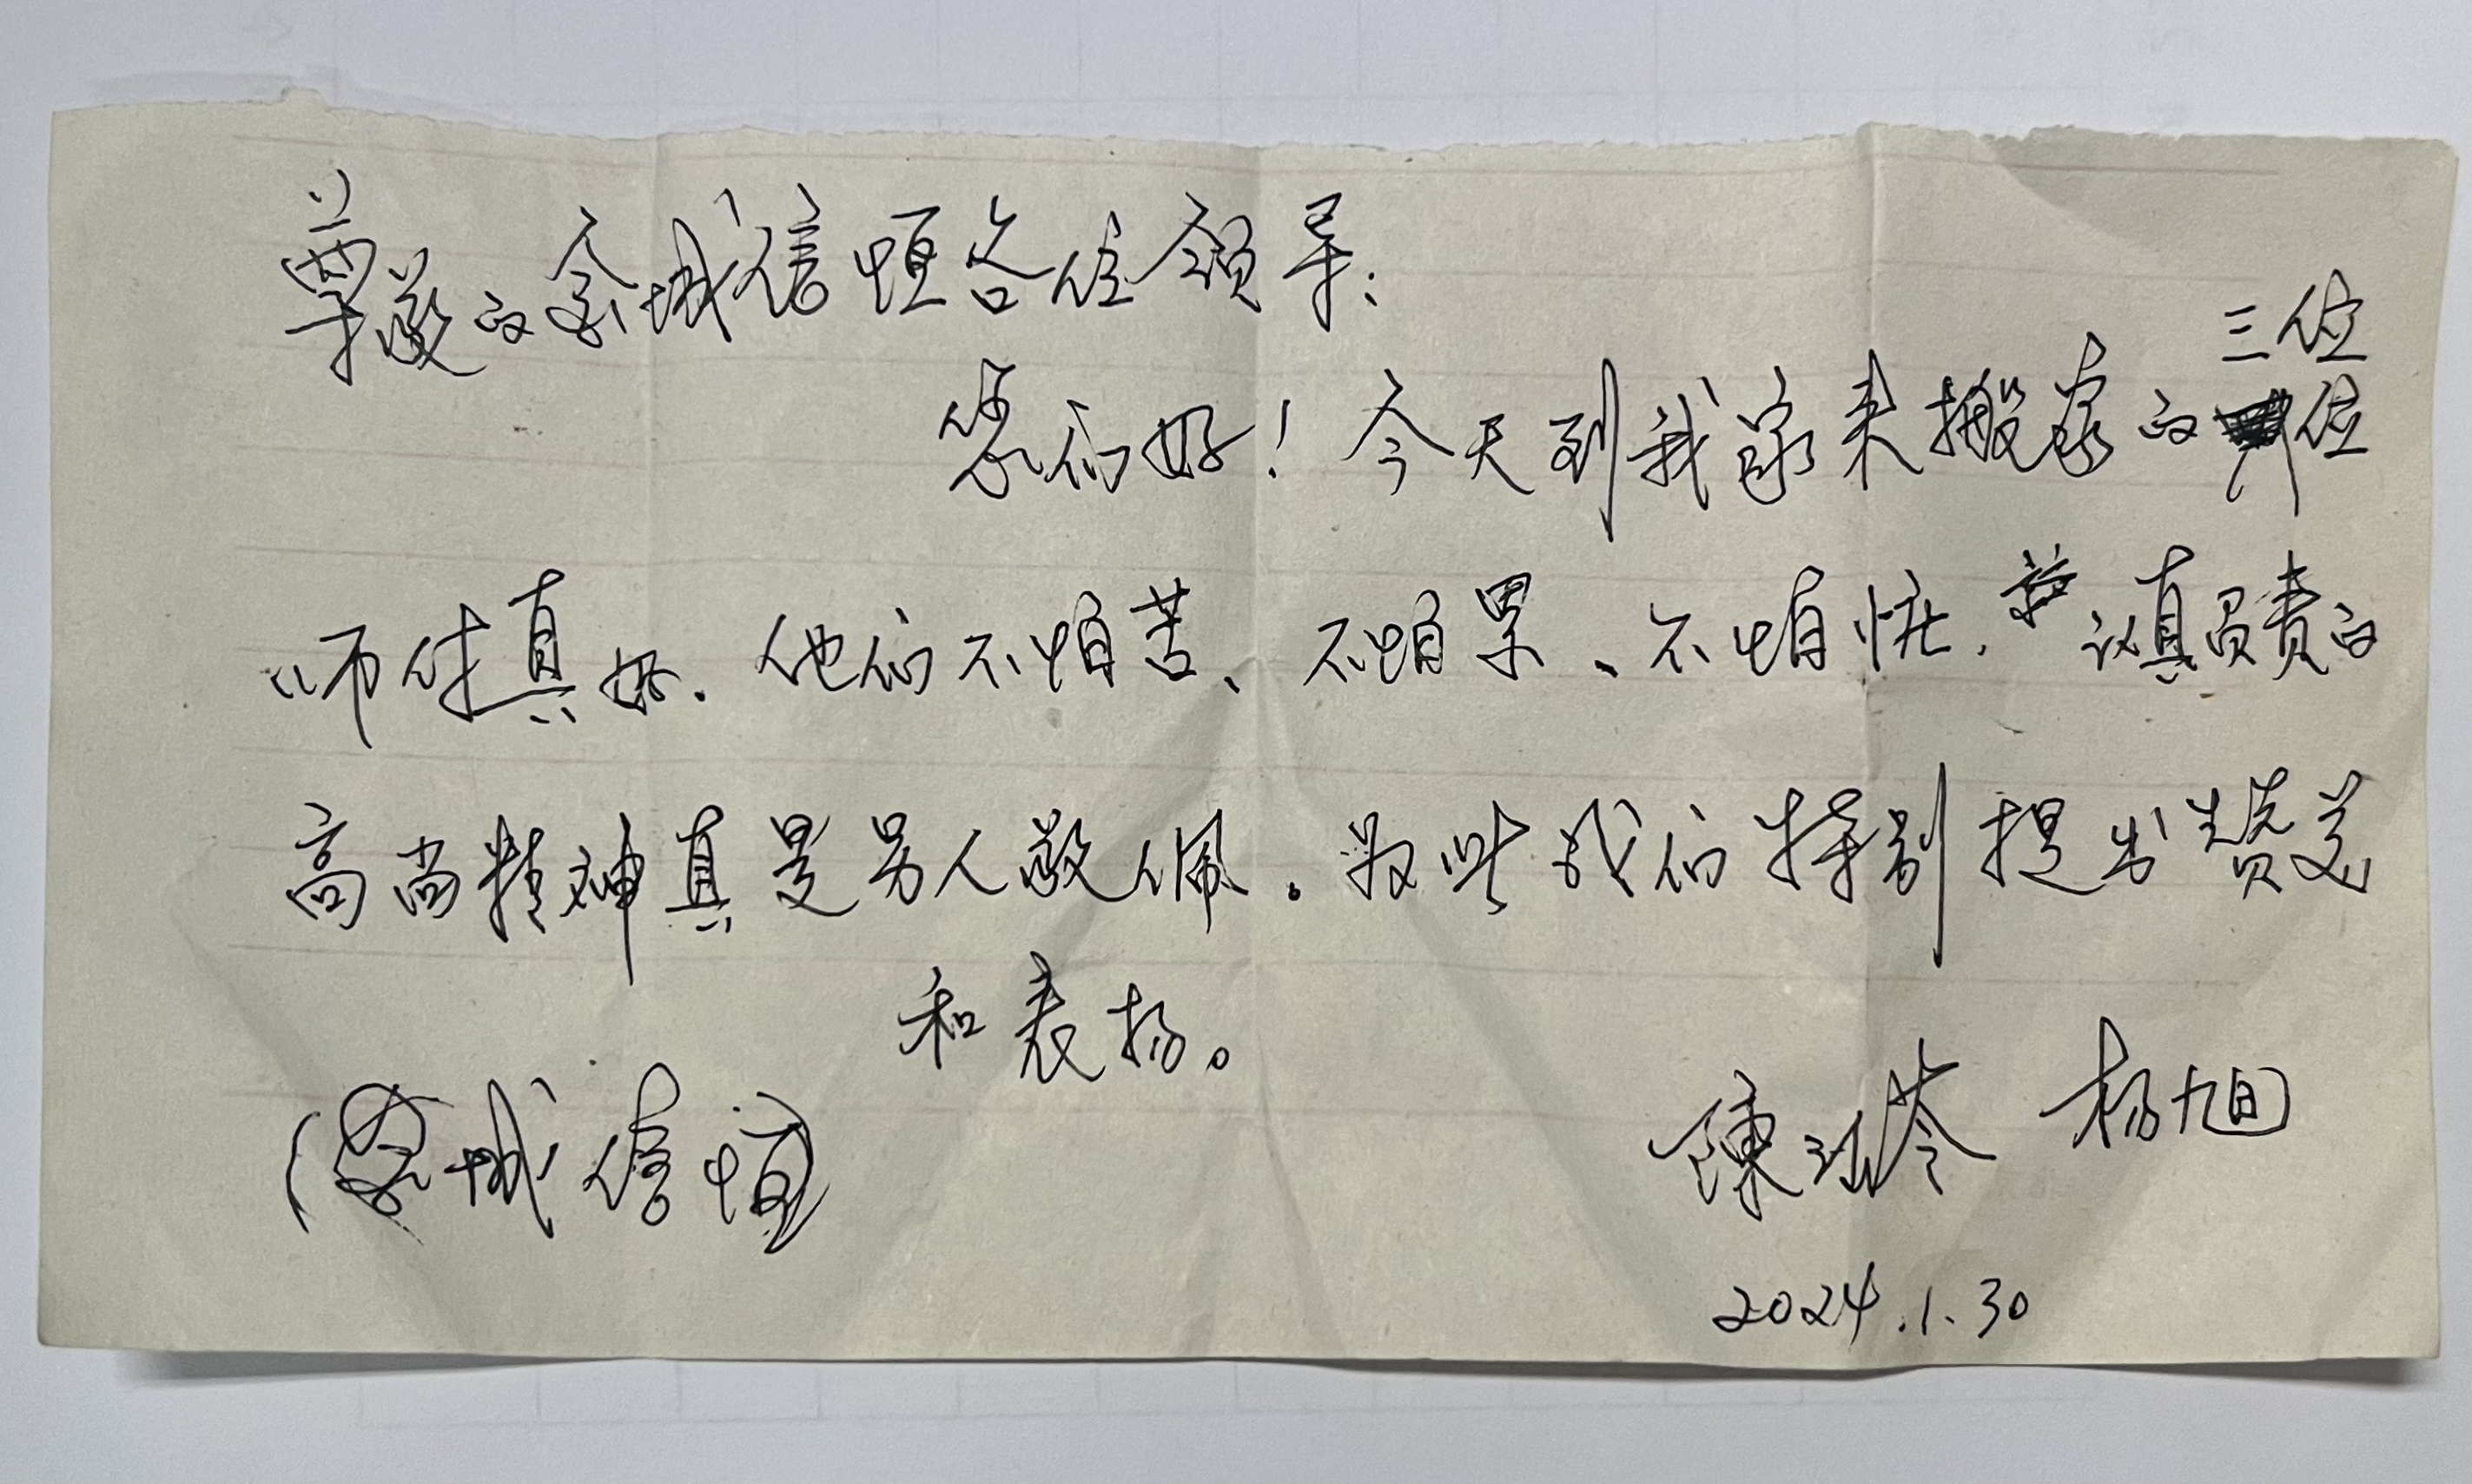 尊敬的京城信恒各位领导：
您们好！今天到我家来搬家的三位
师付真好.他们不怕苦、不怕累、不怕忙.认真负责的
高尚精神真是另人敬佩。为此我们特别提出赞美
和表扬。
（京城信恒）
陳 苓 杨旭
2024.1.30